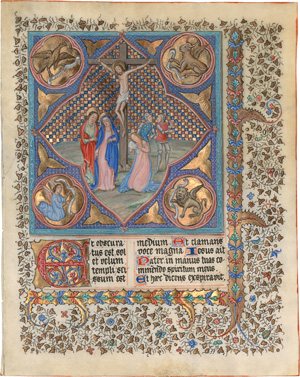 Et obscura
tus est sol
et velum
templi sci
ssum est
medium. Et clamans
voce magna Iesus ait
Pater in manus tuas
commendo spiritum meum.
Et hec dicens expiravit.